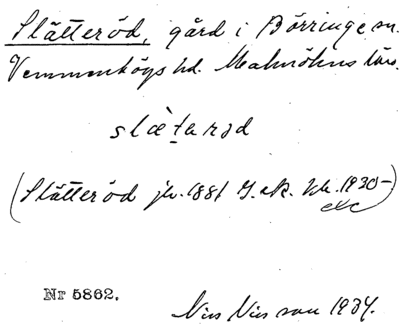 Slätteröd, gård i Börringe sn.
Vemmenhögs hd. Malmöhus län.
slæ̀tarəd
(Slätteröd jr. 1881 G.s.K. 1930-
etc)
Nr 5862.
Nils Nilsson 1934.